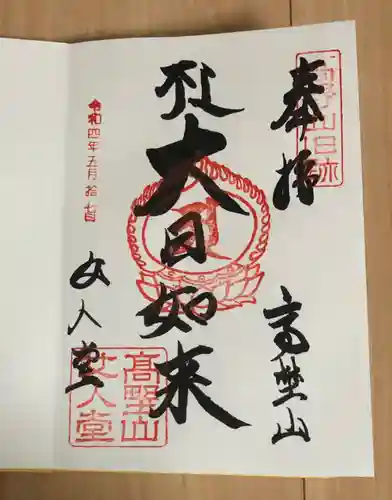 奉拝
高野山
大日如来
女人堂
令和四年五月拾七日
高野山
女人堂